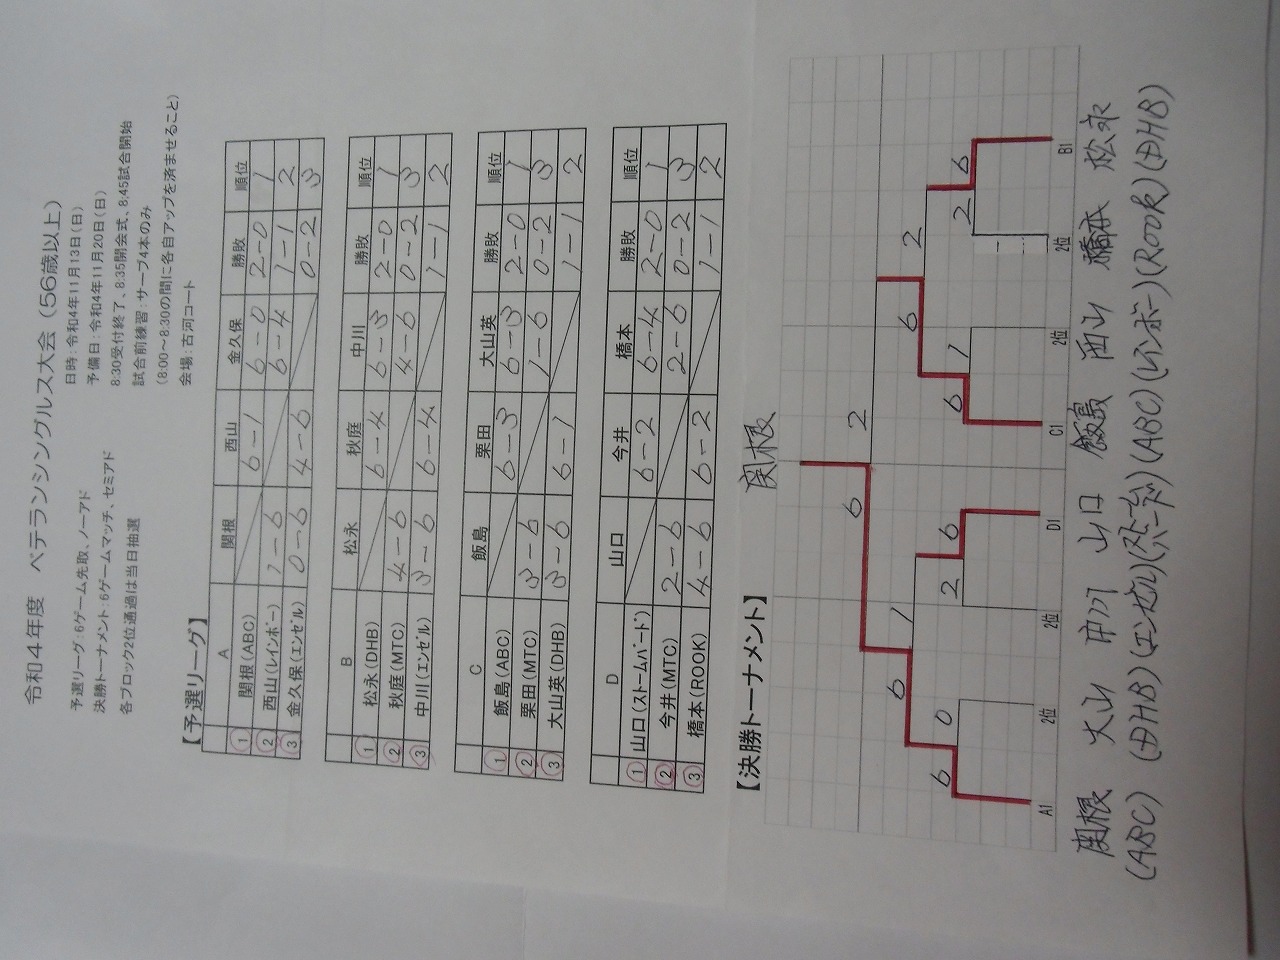 令和4年度 ベテランシングルス大会(56歳以上)
日時:令和4年11月13日(日)
予備日:令和4年11月20日(日)
予選リーグ:6ゲーム先取、ノーアド 8:30受付終了、8:35開会式、8:45試合開始
決勝トーナメント:6ゲームマッチ、セミアド 試合前練習:サーブ4本のみ
各ブロック2位通過は当日抽選 (8:00~8:30の間に各自アップを済ませること)
会場:古河コート
【予選リーグ】
A 関根 西山 金久保 勝敗 順位
① 関根(ABC) 6-1 6-0 2-0 1
② 西山(レインボー) 1-6 6-4 1-1 2
③ 金久保(エンゼル) 0-6 4-6 0-2 3
B 松永 秋庭 中川 勝敗 順位
① 松永(DHB) 6-4 6-3 2-0 1
② 秋庭(MTC) 4-6 4-6 0-2 3
③ 中川(エンゼル) 3-6 6-4 1-1 2
C 飯島 栗田 大山英 勝敗 順位
① 飯島(ABC) 6-3 6-3 2-0 1
② 栗田(MTC) 3-6 1-6 0-2 3
③ 大山英(DHB) 3-6 6-1 1-1 2
D 山口 今井 橋本 勝敗 順位
① 山口(ストームバード) 6-2 6-4 2-0 1
② 今井(MTC) 2-6 2-6 0-2 3
③ 橋本(ROOK) 4-6 6-2 1-1 2
【決勝トーナメント】
関根
6 2
6 1 6 2
6 0 2 6 6 1 2 6
A1 2位 2位 D1 C1 2位 2位 B1
関根 大山 中川 山口 飯島 西山 橋本 松永
(ABC) (DHB) (エンゼル) (ストームバード) (ABC) (レインボー) (ROOK) (DHB)